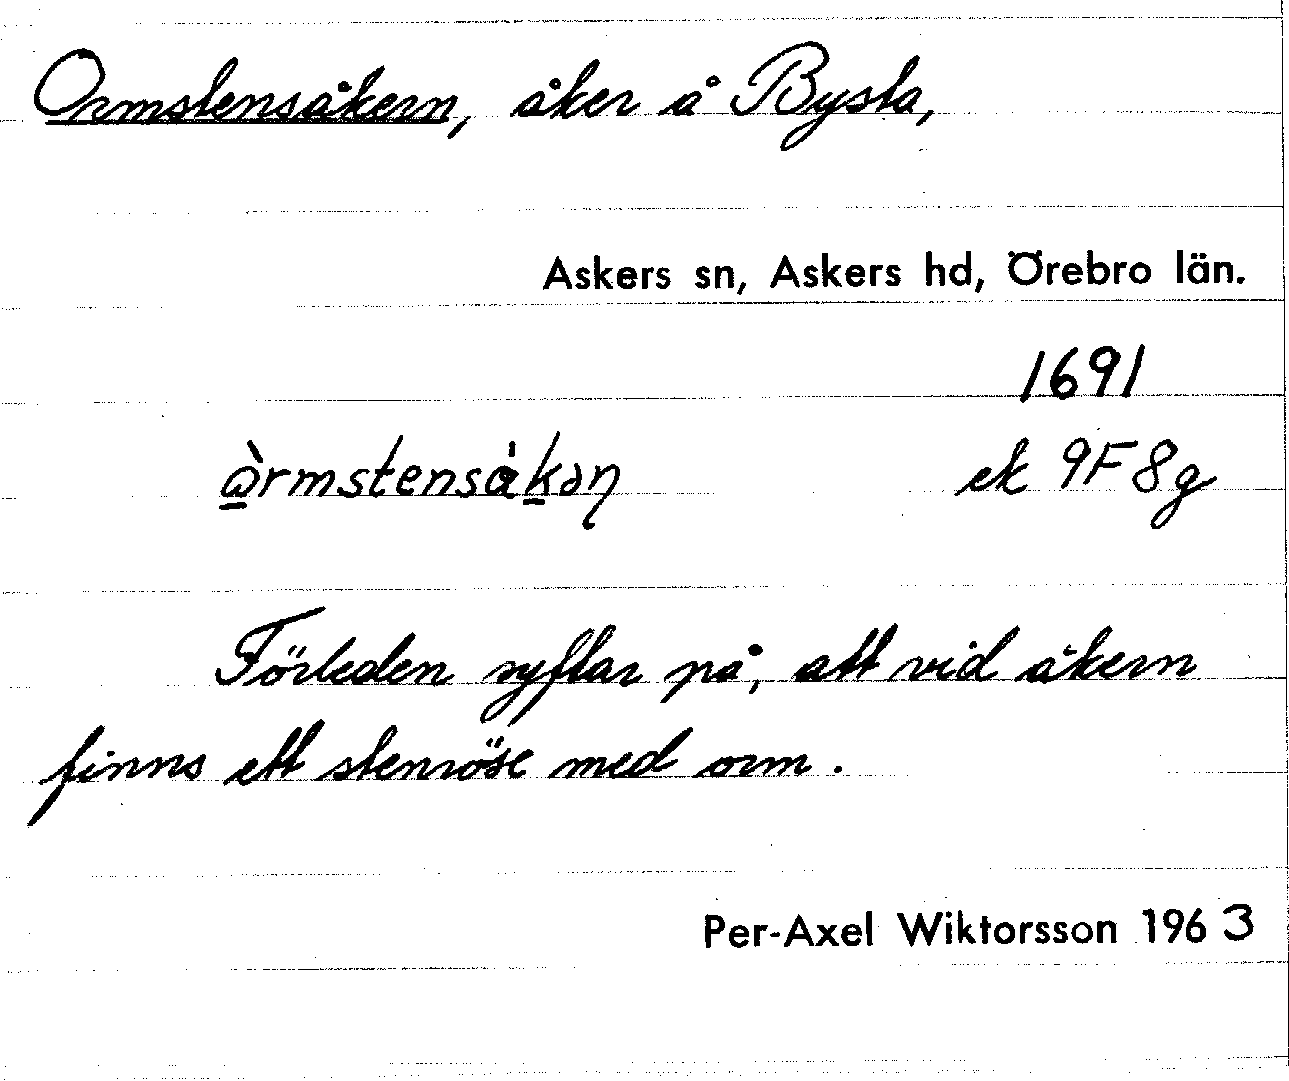 Ormstensåkern, åker å Bysta,
Askers sn, Askers hd, Örebro län.
1691
ek 9F8g
Förleden syftar på, att vid åkern
finns ett stenröse med orm.
Per-Axel Wiktorsson 1963